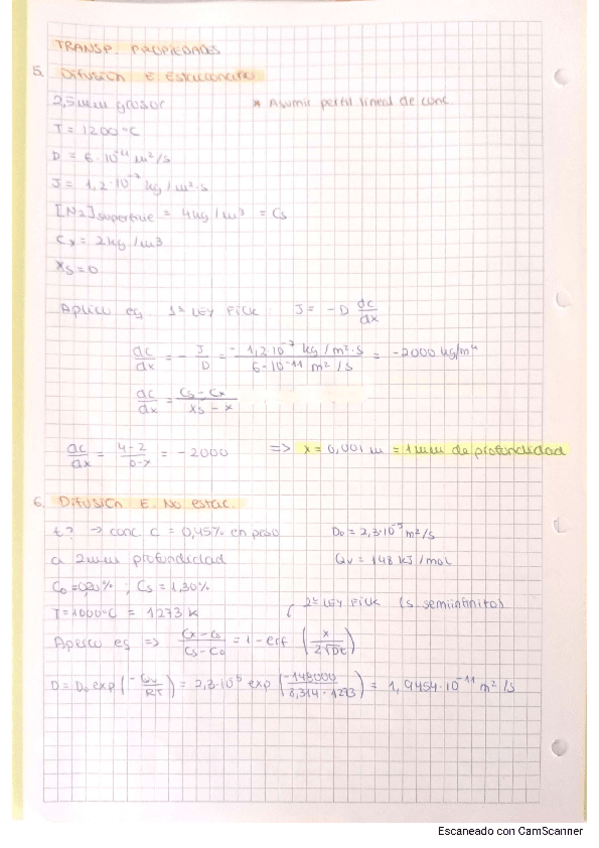 TRANSP. PROPIEDADES
5. Difusión E. Estacionario
2,5mm grosor * Asumir perfil lineal de conc.
T = 1200 °C
D = 6·10⁻¹¹ m²/s
J = 1,2·10⁻⁷ kg/m²·s
[N2]superficie = 4kg/m³ = Cs
Cx = 2kg/m3
xs = 0
Aplico eq 1ª LEY FICK J = -D dc/dx
dc/dx = - J/D = - 1,2·10⁻⁷ kg/m²·s / 6·10⁻¹¹ m²/s = -2000 kg/m⁴
dc/dx = Cs-Cx / xs-x
dc/dx = 4-2 / 0-x = -2000 => x = 0,001 m = 1mm de profundidad
6. Difusión E. No estac.
t? → conc. C = 0,45% en peso Do = 2,3·10⁻⁵ m²/s
a 2mm profundidad Qv = 148 kJ/mol
Co = 0,20% ; Cs = 1,30%
T = 1000°C = 1273 K 2ª LEY FICK (s semiinfinito)
Aplico eq => Cx-Co / Cs-Co = 1-erf (x / 2√Dt)
D = Do exp (-Qv / RT) = 2,3·10⁻⁵ exp (-148000 / 8,314·1273) = 1,9454·10⁻¹¹ m²/s
Escaneado con CamScanner